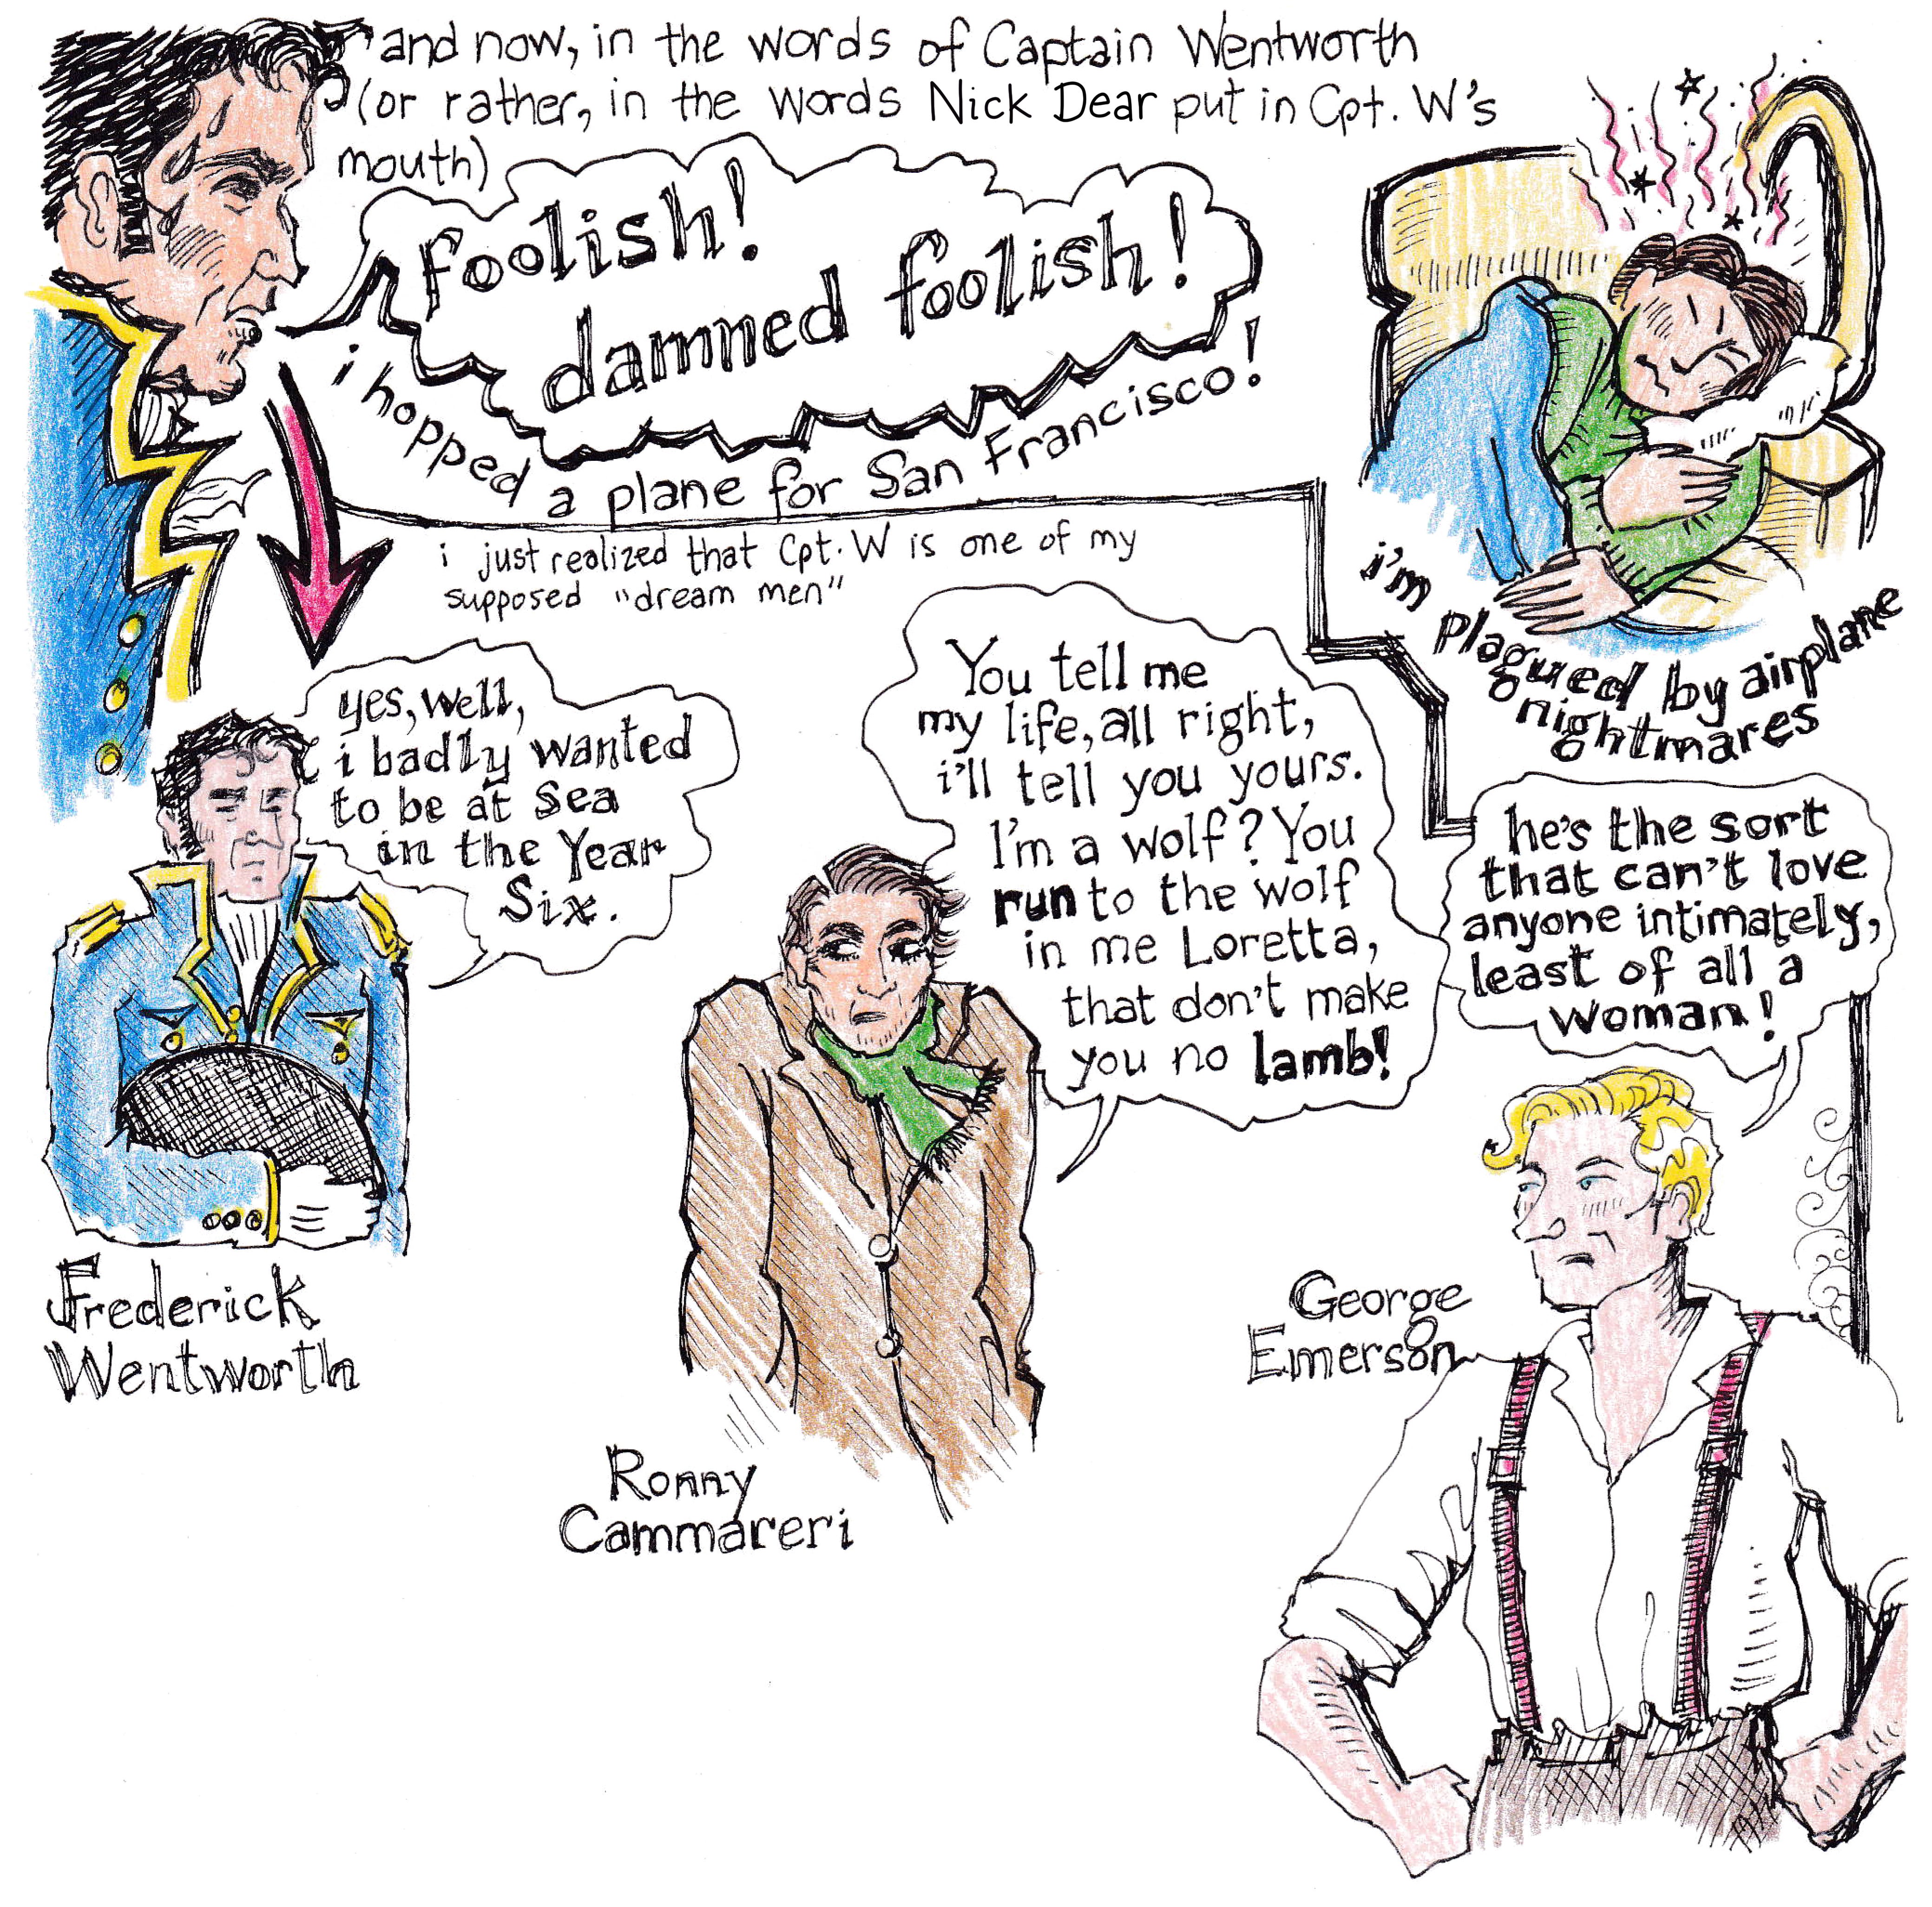 and now, in the words of Captain Wentworth
(or rather, in the words Nick Dear put in Cpt. W's
mouth)
foolish!
damned foolish!
i hopped a plane for San Francisco!
i'm plagued by airplane
nightmares
i just realized that Cpt. W is one of my
supposed "dream men"
yes, well,
i badly wanted
to be at Sea
in the Year
Six.
Frederick
Wentworth
You tell me
my life, all right,
i'll tell you yours.
I'm a wolf? You
run to the wolf
in me Loretta,
that don't make
you no lamb!
Ronny
Cammareri
he's the sort
that can't love
anyone intimately,
least of all a
woman!
George
Emerson